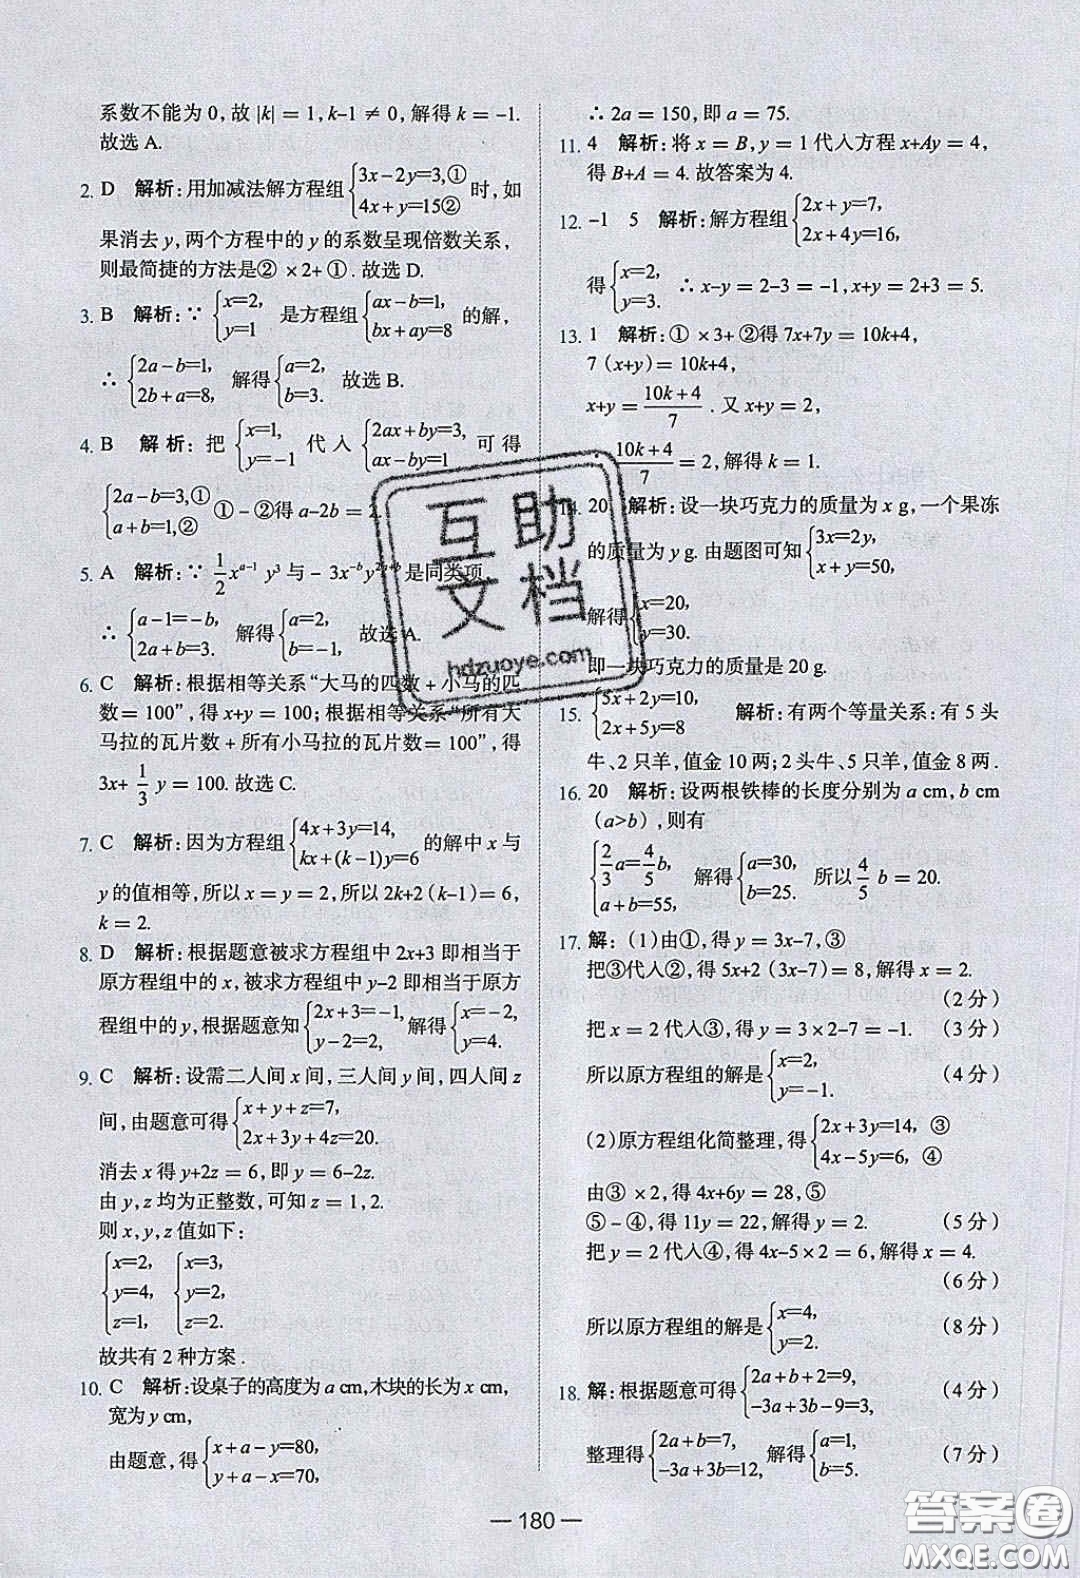 系数不能为 0,故 |k| = 1, k-1 ≠ 0,解得 k = -1.
故选 A.
2. D 解析:用加减法解方程组 {3x-2y=3,① 4x+y=15② 时,如
果消去 y,两个方程中的 y 的系数呈现倍数关系,
则最简捷的方法是② ×2+ ①. 故选 D.
3. B 解析:∵ {x=2, y=1 是方程组 {ax-b=1, bx+ay=8 的解,
∴ {2a-b=1, 2b+a=8, 解得 {a=2, b=3. 故选 B.
4. B 解析:把 {x=1, y=-1 代入 {2ax+by=3, ax-by=1 可得
{2a-b=3,① a+b=1,② ①-②得 a-2b = 2
5. A 解析:∵ 1/2 x^{a-1} y³ 与 - 3x^{-b}y^{2a+b} 是同类项,
∴ {a-1=-b, 2a+b=3. 解得 {a=2, b=-1, 故选 A.
6. C 解析:根据相等关系“大马的匹数 + 小马的匹
数= 100”,得 x+y = 100;根据相等关系“所有大
马拉的瓦片数 + 所有小马拉的瓦片数= 100”,得
3x+ 1/3 y = 100. 故选 C.
7. C 解析:因为方程组 {4x+3y=14, kx+(k-1)y=6 的解中 x 与
y 的值相等,所以 x = y = 2,所以 2k+2 (k-1) = 6,
k = 2.
8. D 解析:根据题意被求方程组中 2x+3 即相当于
原方程组中的 x,被求方程组中 y-2 即相当于原方
程组中的 y,根据题意知 {2x+3=-1, y-2=2, 解得 {x=-2, y=4.
9. C 解析:设需二人间 x 间,三人间 y 间,四人间 z
间,由题意可得 {x+y+z=7, 2x+3y+4z=20.
消去 x 得 y+2z = 6,即 y = 6-2z.
由 y, z 均为正整数,可知 z = 1, 2.
则 x, y, z 值如下:
{x=2, y=4, z=1, {x=3, y=2, z=2.
故共有 2 种方案.
10. C 解析:设桌子的高度为 a cm,木块的长为 x cm,
宽为 y cm,
由题意,得 {x+a-y=80, y+a-x=70,
∴ 2a = 150,即 a = 75.
11. 4 解析:将 x = B, y = 1 代入方程 x+Ay = 4,
得 B+A = 4. 故答案为 4.
12. -1 5 解析:解方程组 {2x+y=7, 2x+4y=16,
得 {x=2, y=3. ∴ x-y = 2-3 = -1, x+y = 2+3 = 5.
13. 1 解析:① ×3+ ②得 7x+7y = 10k+4,
7 (x+y) = 10k+4,
x+y = (10k+4)/7 . 又 x+y = 2,
∴ (10k+4)/7 = 2,解得 k = 1.
14. 20 解析:设一块巧克力的质量为 x g,一个果冻
的质量为 y g. 由题图可知 {3x=2y, x+y=50,
解得 {x=20, y=30.
即一块巧克力的质量是 20 g.
15. {5x+2y=10, 2x+5y=8 解析:有两个等量关系:有 5 头
牛、2 只羊,值金 10 两;2 头牛、5 只羊,值金 8 两.
16. 20 解析:设两根铁棒的长度分别为 a cm, b cm
(a>b),则有
{2/3 a=4/5 b, a+b=55, 解得 {a=30, b=25. 所以 4/5 b = 20.
17. 解:(1)由①,得 y = 3x-7,③
把③代入②,得 5x+2 (3x-7) = 8,解得 x = 2.
(2 分)
把 x = 2 代入③,得 y = 3×2-7 = -1. (3 分)
所以原方程组的解是 {x=2, y=-1. (4 分)
(2)原方程组化简整理,得 {2x+3y=14, ③ 4x-5y=6, ④
由③ ×2,得 4x+6y = 28,⑤
⑤ - ④,得 11y = 22,解得 y = 2. (5 分)
把 y = 2 代入④,得 4x-5×2 = 6,解得 x = 4.
(6 分)
所以原方程组的解是 {x=4, y=2. (8 分)
18. 解:根据题意可得 {2a+b+2=9, -3a+3b-9=3, (4 分)
整理得 {2a+b=7, -3a+3b=12, 解得 {a=1, b=5. (7 分)
— 180 —
互助
文档
hdzuoye.com
答案圈
MXQE.COM